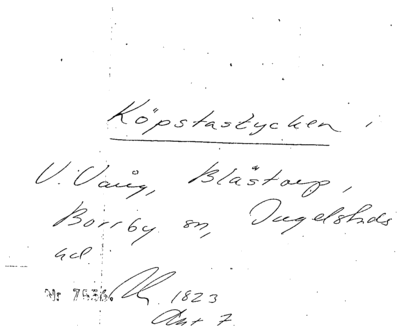 Köpstastycken
V. Vång, Blästorp,
Borrby sn, Ingelstads
hd
Nr 7536 1823
Akt 7